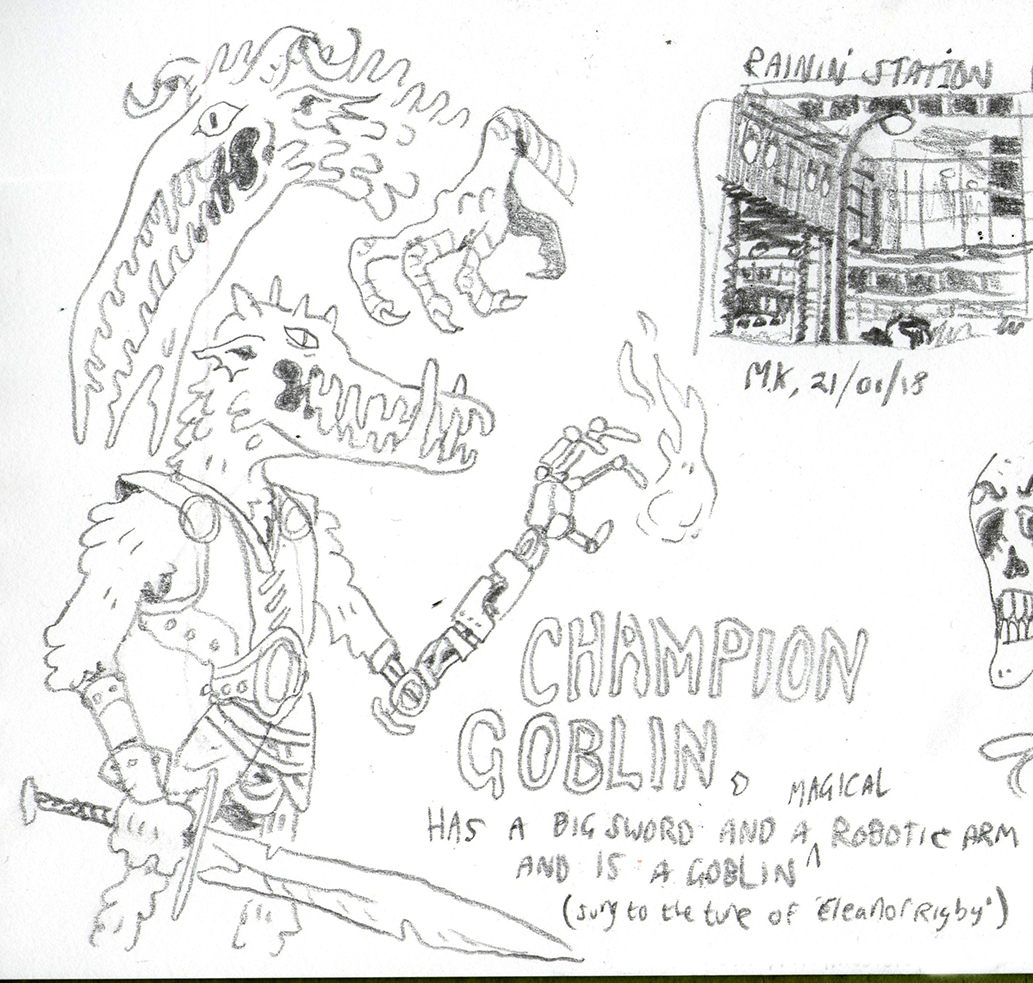 RAININ' STATION
M.K, 21/01/18
CHAMPION
GOBLIN
MAGICAL
HAS A BIG SWORD AND A ROBOTIC ARM
AND IS A GOBLIN
(sung to the tune of 'Eleanor Rigby')